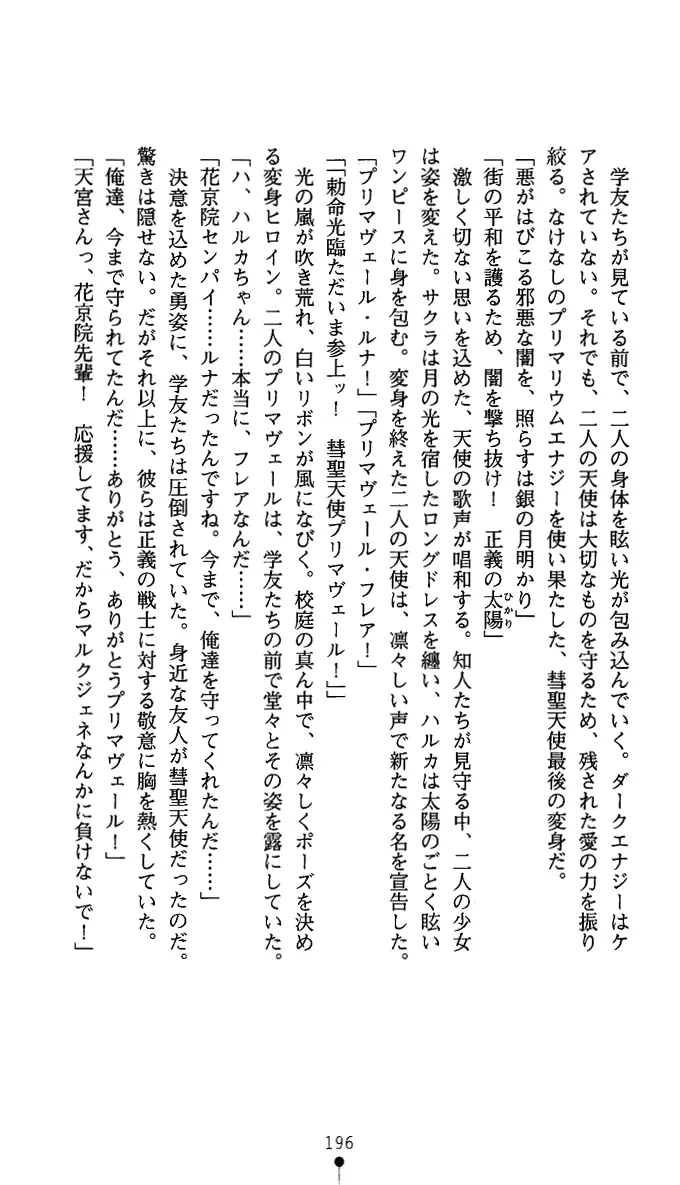 学友たちが見ている前で、二人の身体を眩い光が包み込んでいく。ダークエナジーはケ
アされていない。それでも、二人の天使は大切なものを守るため、残された愛の力を振り
絞る。なけなしのプリマリウムエナジーを使い果たした、彗聖天使最後の変身だ。
「悪がはびこる邪悪な闇を、照らすは銀の月明かり」
「街の平和を護るため、闇を撃ち抜け！　正義の太陽」
ひかり
激しく切ない思いを込めた、天使の歌声が唱和する。知人たちが見守る中、二人の少女
は姿を変えた。サクラは月の光を宿したロングドレスを纏い、ハルカは太陽のごとく眩い
ワンピースに身を包む。変身を終えた二人の天使は、凛々しい声で新たなる名を宣告した。
「プリマヴェール・ルナ！」「プリマヴェール・フレア！」
「「勅命光臨ただいま参上ッ！　彗聖天使プリマヴェール！」」
光の嵐が吹き荒れ、白いリボンが風になびく。校庭の真ん中で、凛々しくポーズを決め
る変身ヒロイン。二人のプリマヴェールは、学友たちの前で堂々とその姿を露にしていた。
「ハ、ハルカちゃん……本当に、フレアなんだ……」
「花京院センパイ……ルナだったんですね。今まで、俺達を守ってくれたんだ……」
決意を込めた勇姿に、学友たちは圧倒されていた。身近な友人が彗聖天使だったのだ。
驚きは隠せない。だがそれ以上に、彼らは正義の戦士に対する敬意に胸を熱くしていた。
「俺達、今まで守られてたんだ……ありがとう、ありがとうプリマヴェール！」
「天宮さんっ、花京院先輩！　応援してます、だからマルクジェネなんかに負けないで！」
196